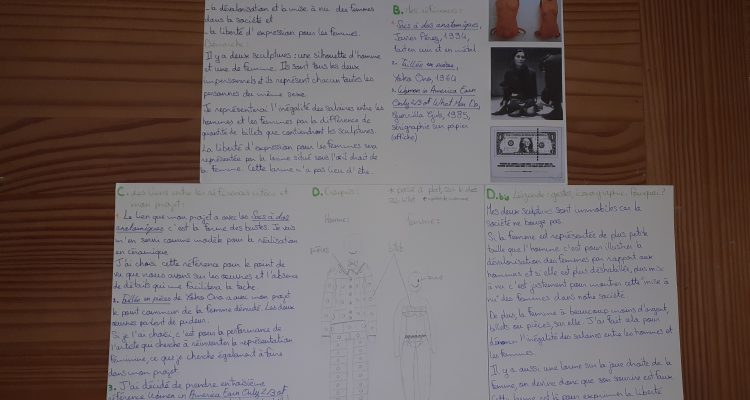 - la dévalorisation et la mise à nu des femmes
dans la société et
- la liberté d'expression pour les femmes.
Démarche:
Il y a deux sculptures : une silhouette d'homme
et une de femme. Ils sont tous les deux
impersonnels et ils représent chacun toutes les
personnes du même sexe.
Je représenterai l'inégalité des salaires entre les
hommes et les femmes par la différence de
quantité de billets que contiendront les sculptures.
La liberté d'expression pour les femmes sera
représentée par la larme situé sous l'œil droit de
la femme. Cette larme n'a pas lieu d'être.
B. Mes références:
1. Sacs à dos anatomiques,
Javier Pérez, 1994,
en cuir et en métal.
2. Taillée en pièces,
Yoko Ono, 1964
3. Women in America Earn
Only 2/3 of What Men Do,
Guerrilla Girls, 1985,
sérigraphie sur papier
(affiche)
C. Les liens entre les références et
mon projet:
1. Le lien que mon projet a avec les Sacs à dos
anatomiques c'est la forme des bustes. Je vais
m'en servir comme modèle pour la réalisation
en céramique.
J'ai choisi cette référence pour le point de
vue que nous avons sur les œuvres et l'absence
de détails qui me facilitera la tâche.
2. Taillée en pièces de Yoko Ono a avec mon projet
le point commun de la femme dénudé. Les deux
œuvres parlent de pudeur.
Si je l'ai choisi, c'est pour la performance de
l'artiste qui cherche à réinventer la représentation
féminine, ce que je cherche également à faire
dans mon projet.
3. J'ai décidé de prendre en troisième
référence Women in America Earn Only 2/3 of
D. Croquis:
Homme:
Femme:
pièces
billet
larme
D. bis Légende: gestes, iconographie. Pourquoi?
Mes deux sculptures sont immobiles car la
société ne bouge pas.
Si la femme est représentée de plus petite
taille que l'homme c'est pour illustrer la
dévalorisation des femmes par rapport aux
hommes et si elle est plus déshabillée, plus mise
à nu c'est justement pour montrer cette mise à
nu des femmes dans notre société.
De plus, la femme à beaucoup moins d'argent,
billets ou pièces, sur elle. J'ai fait cela pour
dénoncer l'inégalité des salaires entre les hommes et
les femmes.
Il y a aussi, une larme sur la joue droite de la
femme, on devine donc que son sourire est faux.
Cette larme est là pour exprimer la liberté